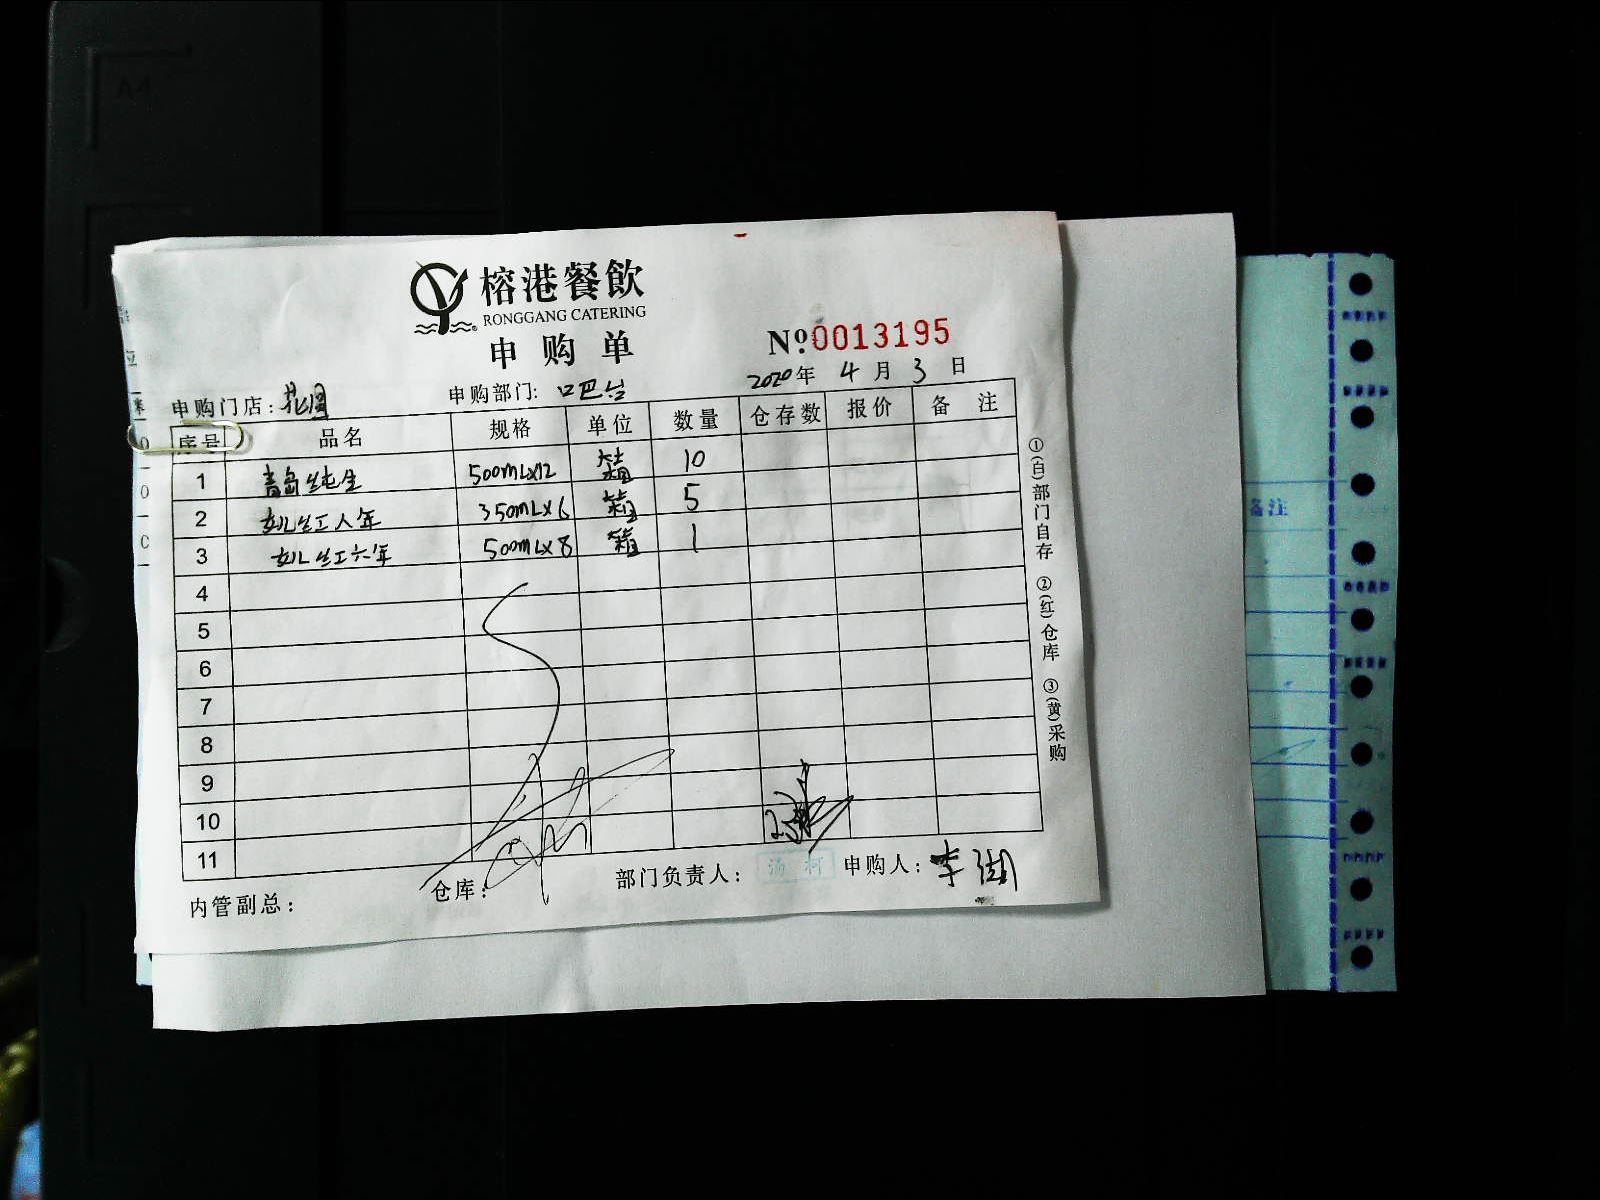 榕港餐飲
RONGGANG CATERING
申购单
№0013195
申购门店：花园 申购部门：吧台 2020年4月3日
序号 品名 规格 单位 数量 仓存数 报价 备注
1 青岛纯生 500mLx12 箱 10
2 女儿红八年 350mLx6 箱 5
3 女儿红六年 500mLx8 箱 1
4
5
6
7
8
9
10
11
内管副总： 仓库： 部门负责人：汤柯 申购人：李
①(白)部门自存 ②(红)仓库 ③(黄)采购
备注
A4